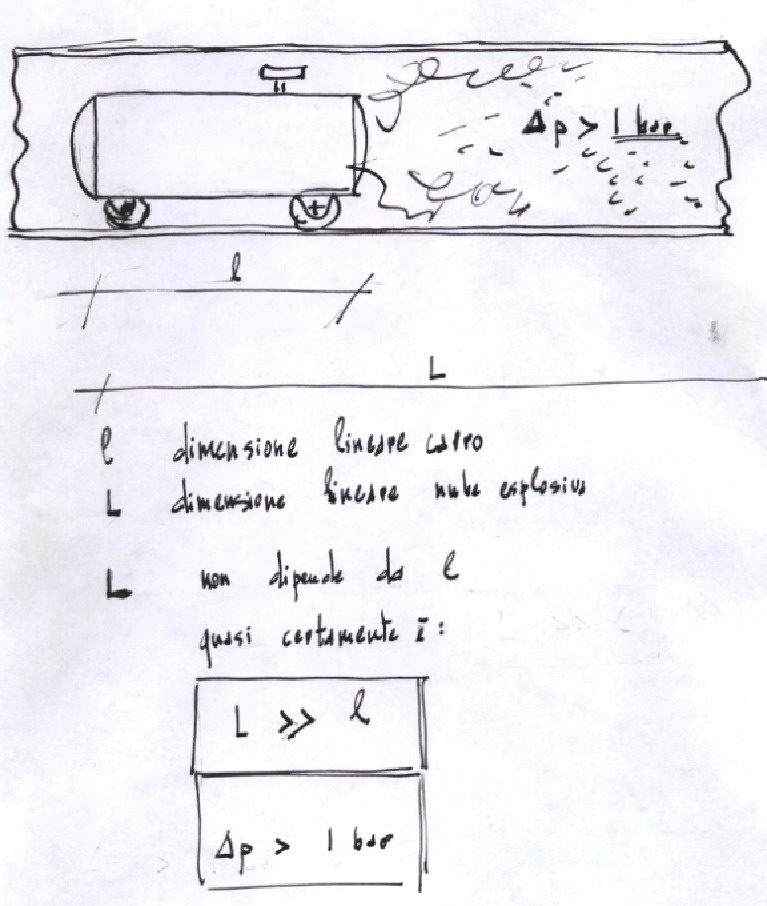 Δp > 1 bar
l
L
l dimensione lineare carro
L dimensione lineare nube esplosiva
L non dipende da l
quasi certamente è:
L >> l
Δp > 1 bar